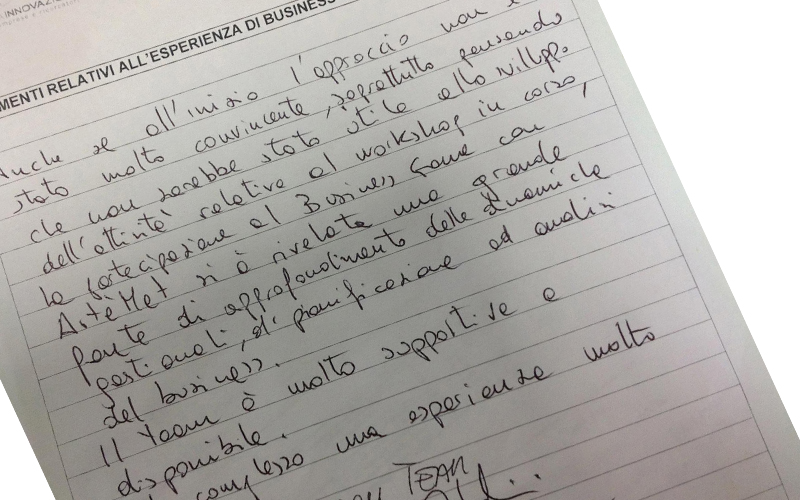 INNOVAZI
MENTI RELATIVI ALL'ESPERIENZA DI BUSINESS
Anche se all'inizio l'approccio non è
stato molto convincente, soprattutto pensando
che non sarebbe stato utile allo svilupp.
dell'attività relativa al workshop in corso,
la partecipazione al Business Game con
ArtèMet si è rivelata una grande
fonte di approfondimento delle dinamiche
gestionali, di pianificazione ed analisi
del business.
Il team è molto supportive e
disponibile.
complesso una esperienza molto
TEAM